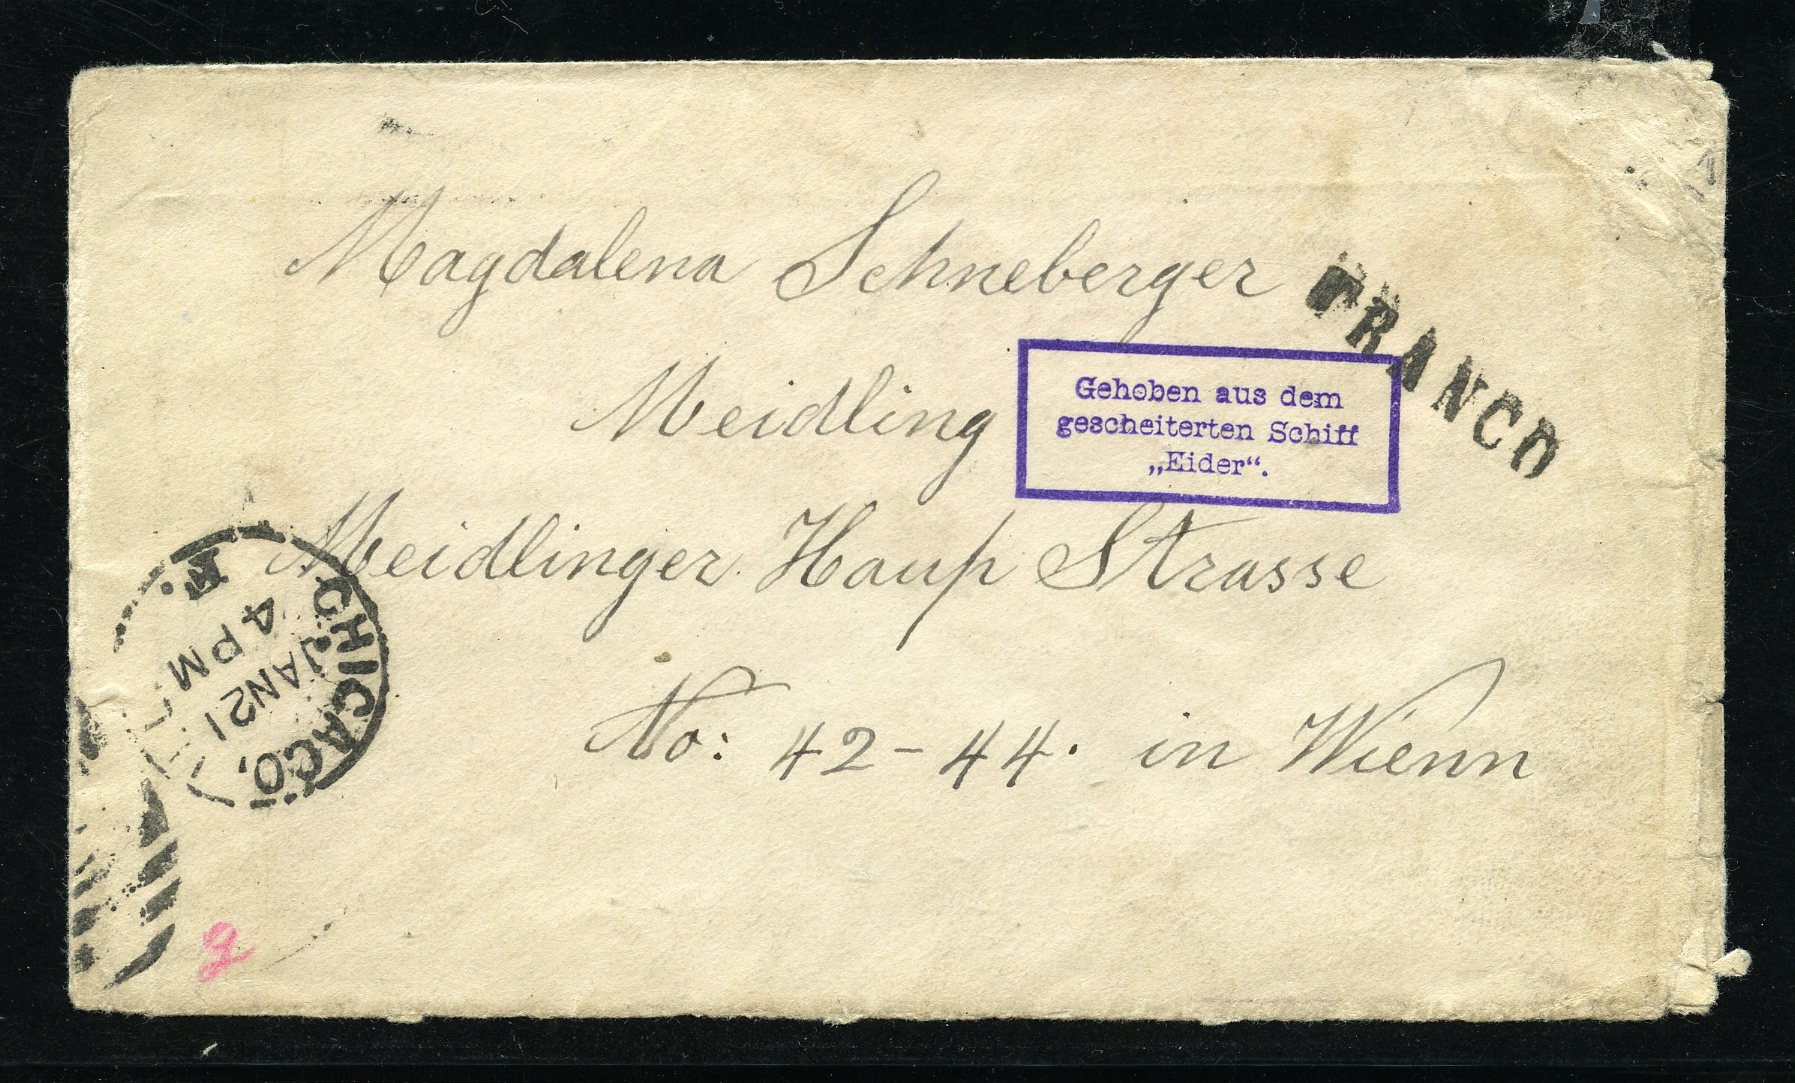 Magdalena Schneberger
FRANCO
Meidling
Gehoben aus dem
gescheiterten Schiff
„Eider“.
Meidlinger Haup Strasse
No: 42-44. in Wienn
CHICAGO,
F.
4 PM
JAN 21